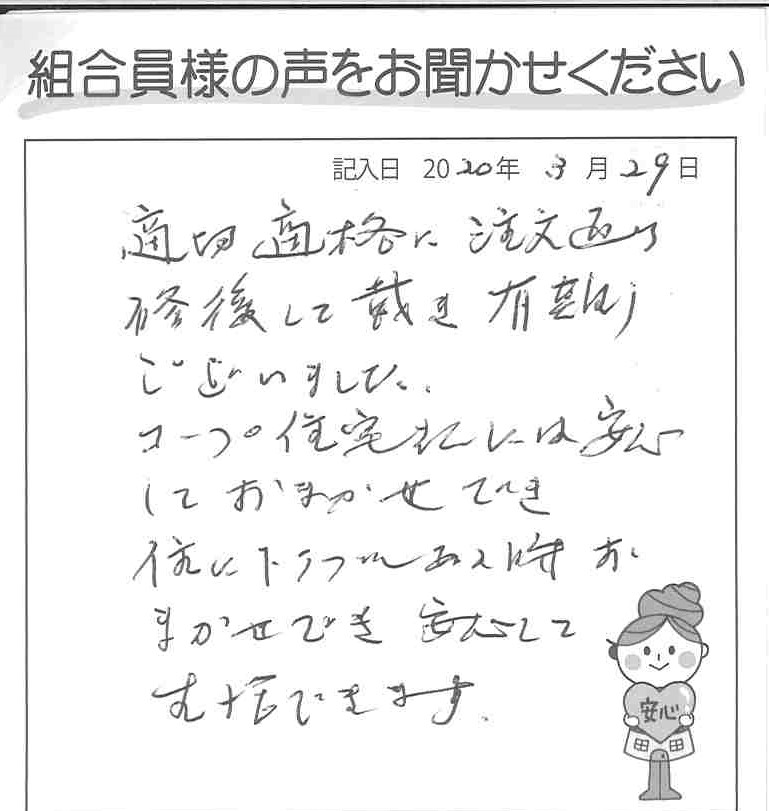 組合員様の声をお聞かせください
記入日 2020年 3月29日
適切適格に注文通り
修復して戴き有難う
ございました。
コープ住宅さんには安心
しておまかせでき
後にトラブルある時お
まかせでき安心して
生活できます。
安心